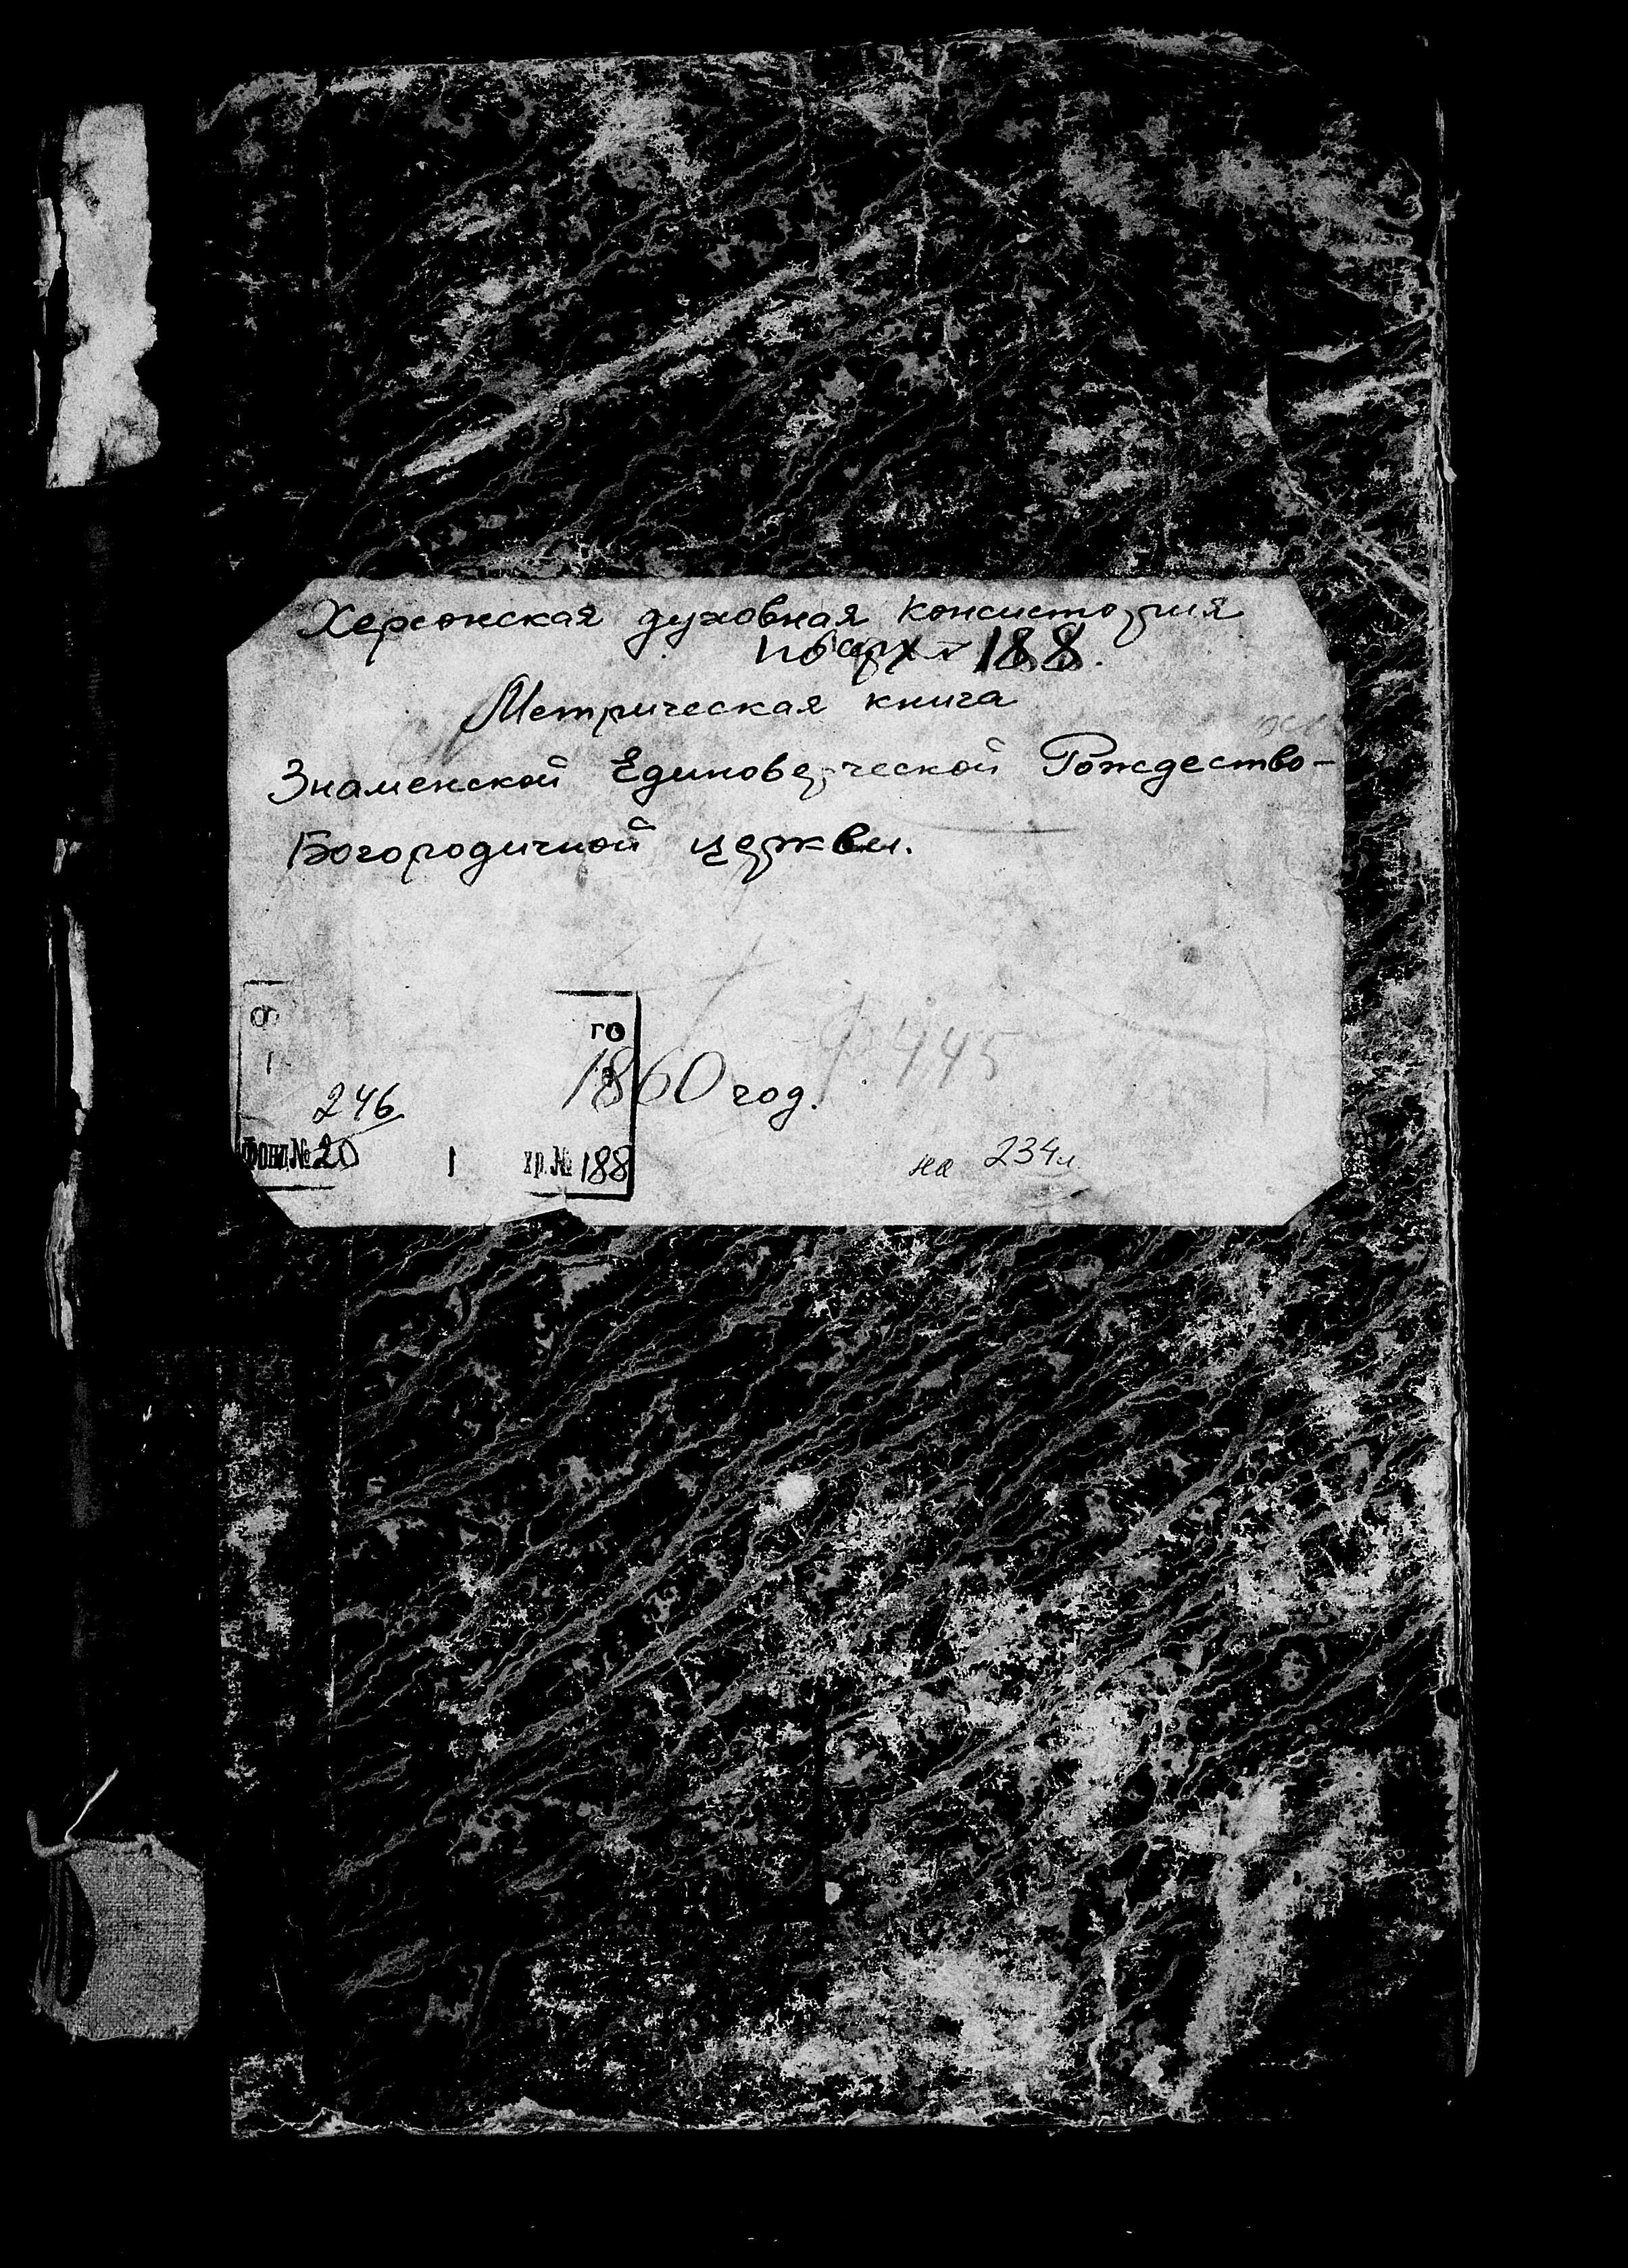 Херсонская духовная консистория
по арх № 188.
Метрическая книга
Знаменской Единоверческой Рождество-
Богородичной церкви.
го
1860 год.
ф 445
246
Фонд № 20 1 хр. № 188
на 234 л.